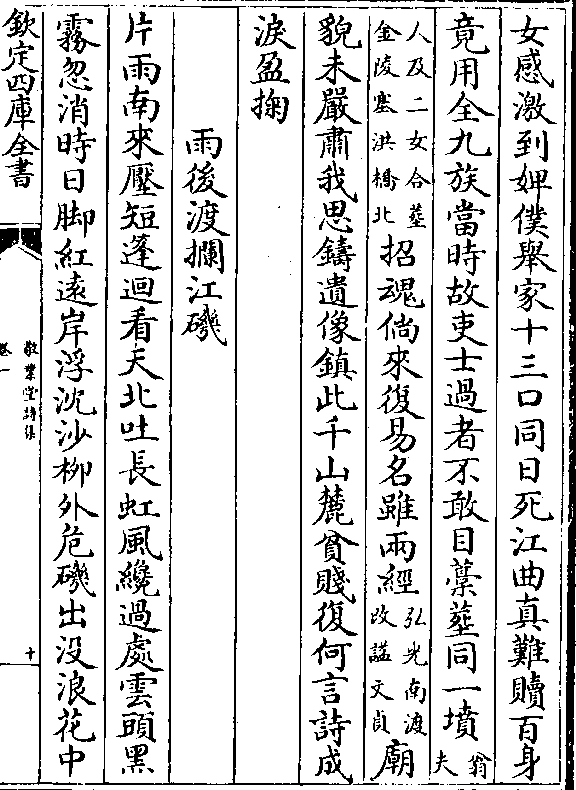 女感激到婢僕舉家十三口同日死江曲真難贖百身
竟用全九族當時故吏士過者不敢目藁塟同一墳翁夫
人及二女合塟金陵塞洪橋北招魂倘來復易名雖兩經弘光南渡改諡文貞廟
貌未嚴肅我思鑄遺像鎮此千山麓貧賤復何言詩成
淚盈掬
雨後渡攔江磯
片雨南來壓短蓬迴看天北吐長虹風纔過處雲頭黑
霧忽消時日脚紅遠岸浮沈沙柳外危磯出没浪花中
欽定四庫全書
敬業堂詩集
卷一
十